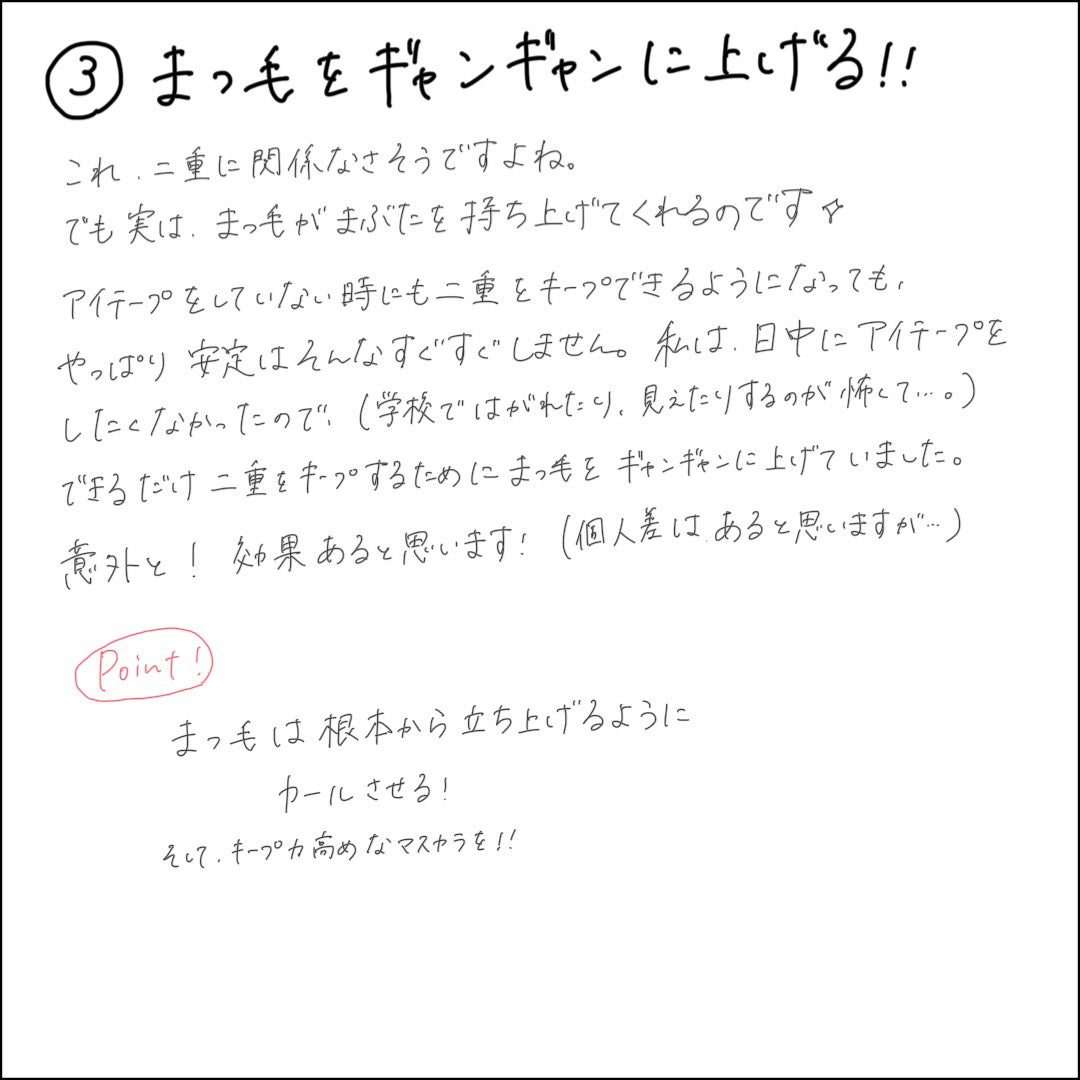 ③ まつ毛をギャンギャンに上げる!!
これ、二重に関係なさそうですよね。
でも実は、まつ毛がまぶたを持ち上げてくれるのです☆
アイテープをしていない時にも二重をキープできるようになっても、
やっぱり安定はそんなすぐすぐしません。私は、日中にアイテープを
したくなかったので、(学校ではがれたり、見えたりするのが怖くて…。)
できるだけ二重をキープするためにまつ毛をギャンギャンに上げていました。
意外と!効果あると思います!(個人差はあると思いますが…)
Point!
まつ毛は根本から立ち上げるように
カールさせる!
そして、キープ力高めなマスカラを!!